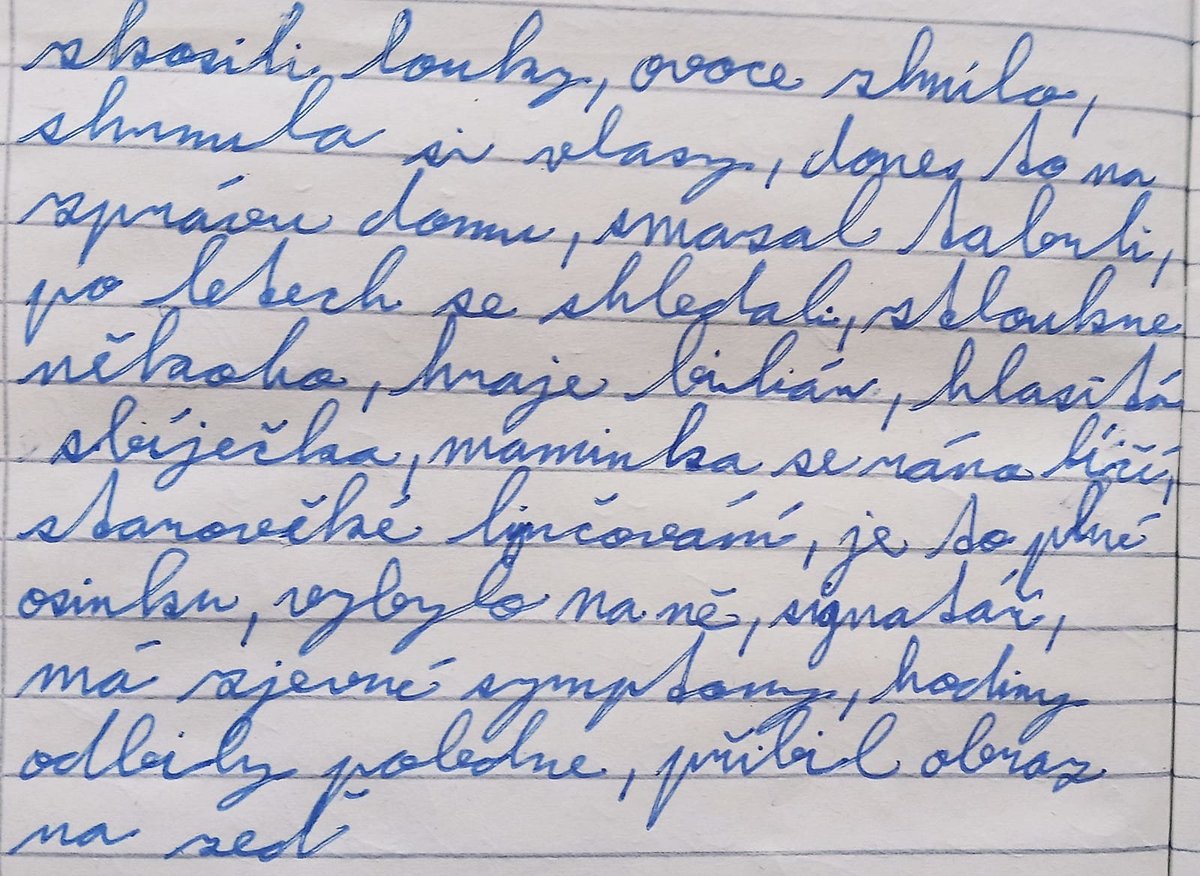 skosili louky, ovoce shnilo,
shrnula si vlasy, dones to na
správu domu, smazal tabuli,
po letech se shledali, stloukne
někoho, hraje biliár, hlasitá
sbíječka, maminka se ráno líčí,
starověké lynčování, je to plné
osinku, vybylo na ně, signatář,
má zjevné symptomy, hodiny
odbily poledne, přibil obraz
na zeď